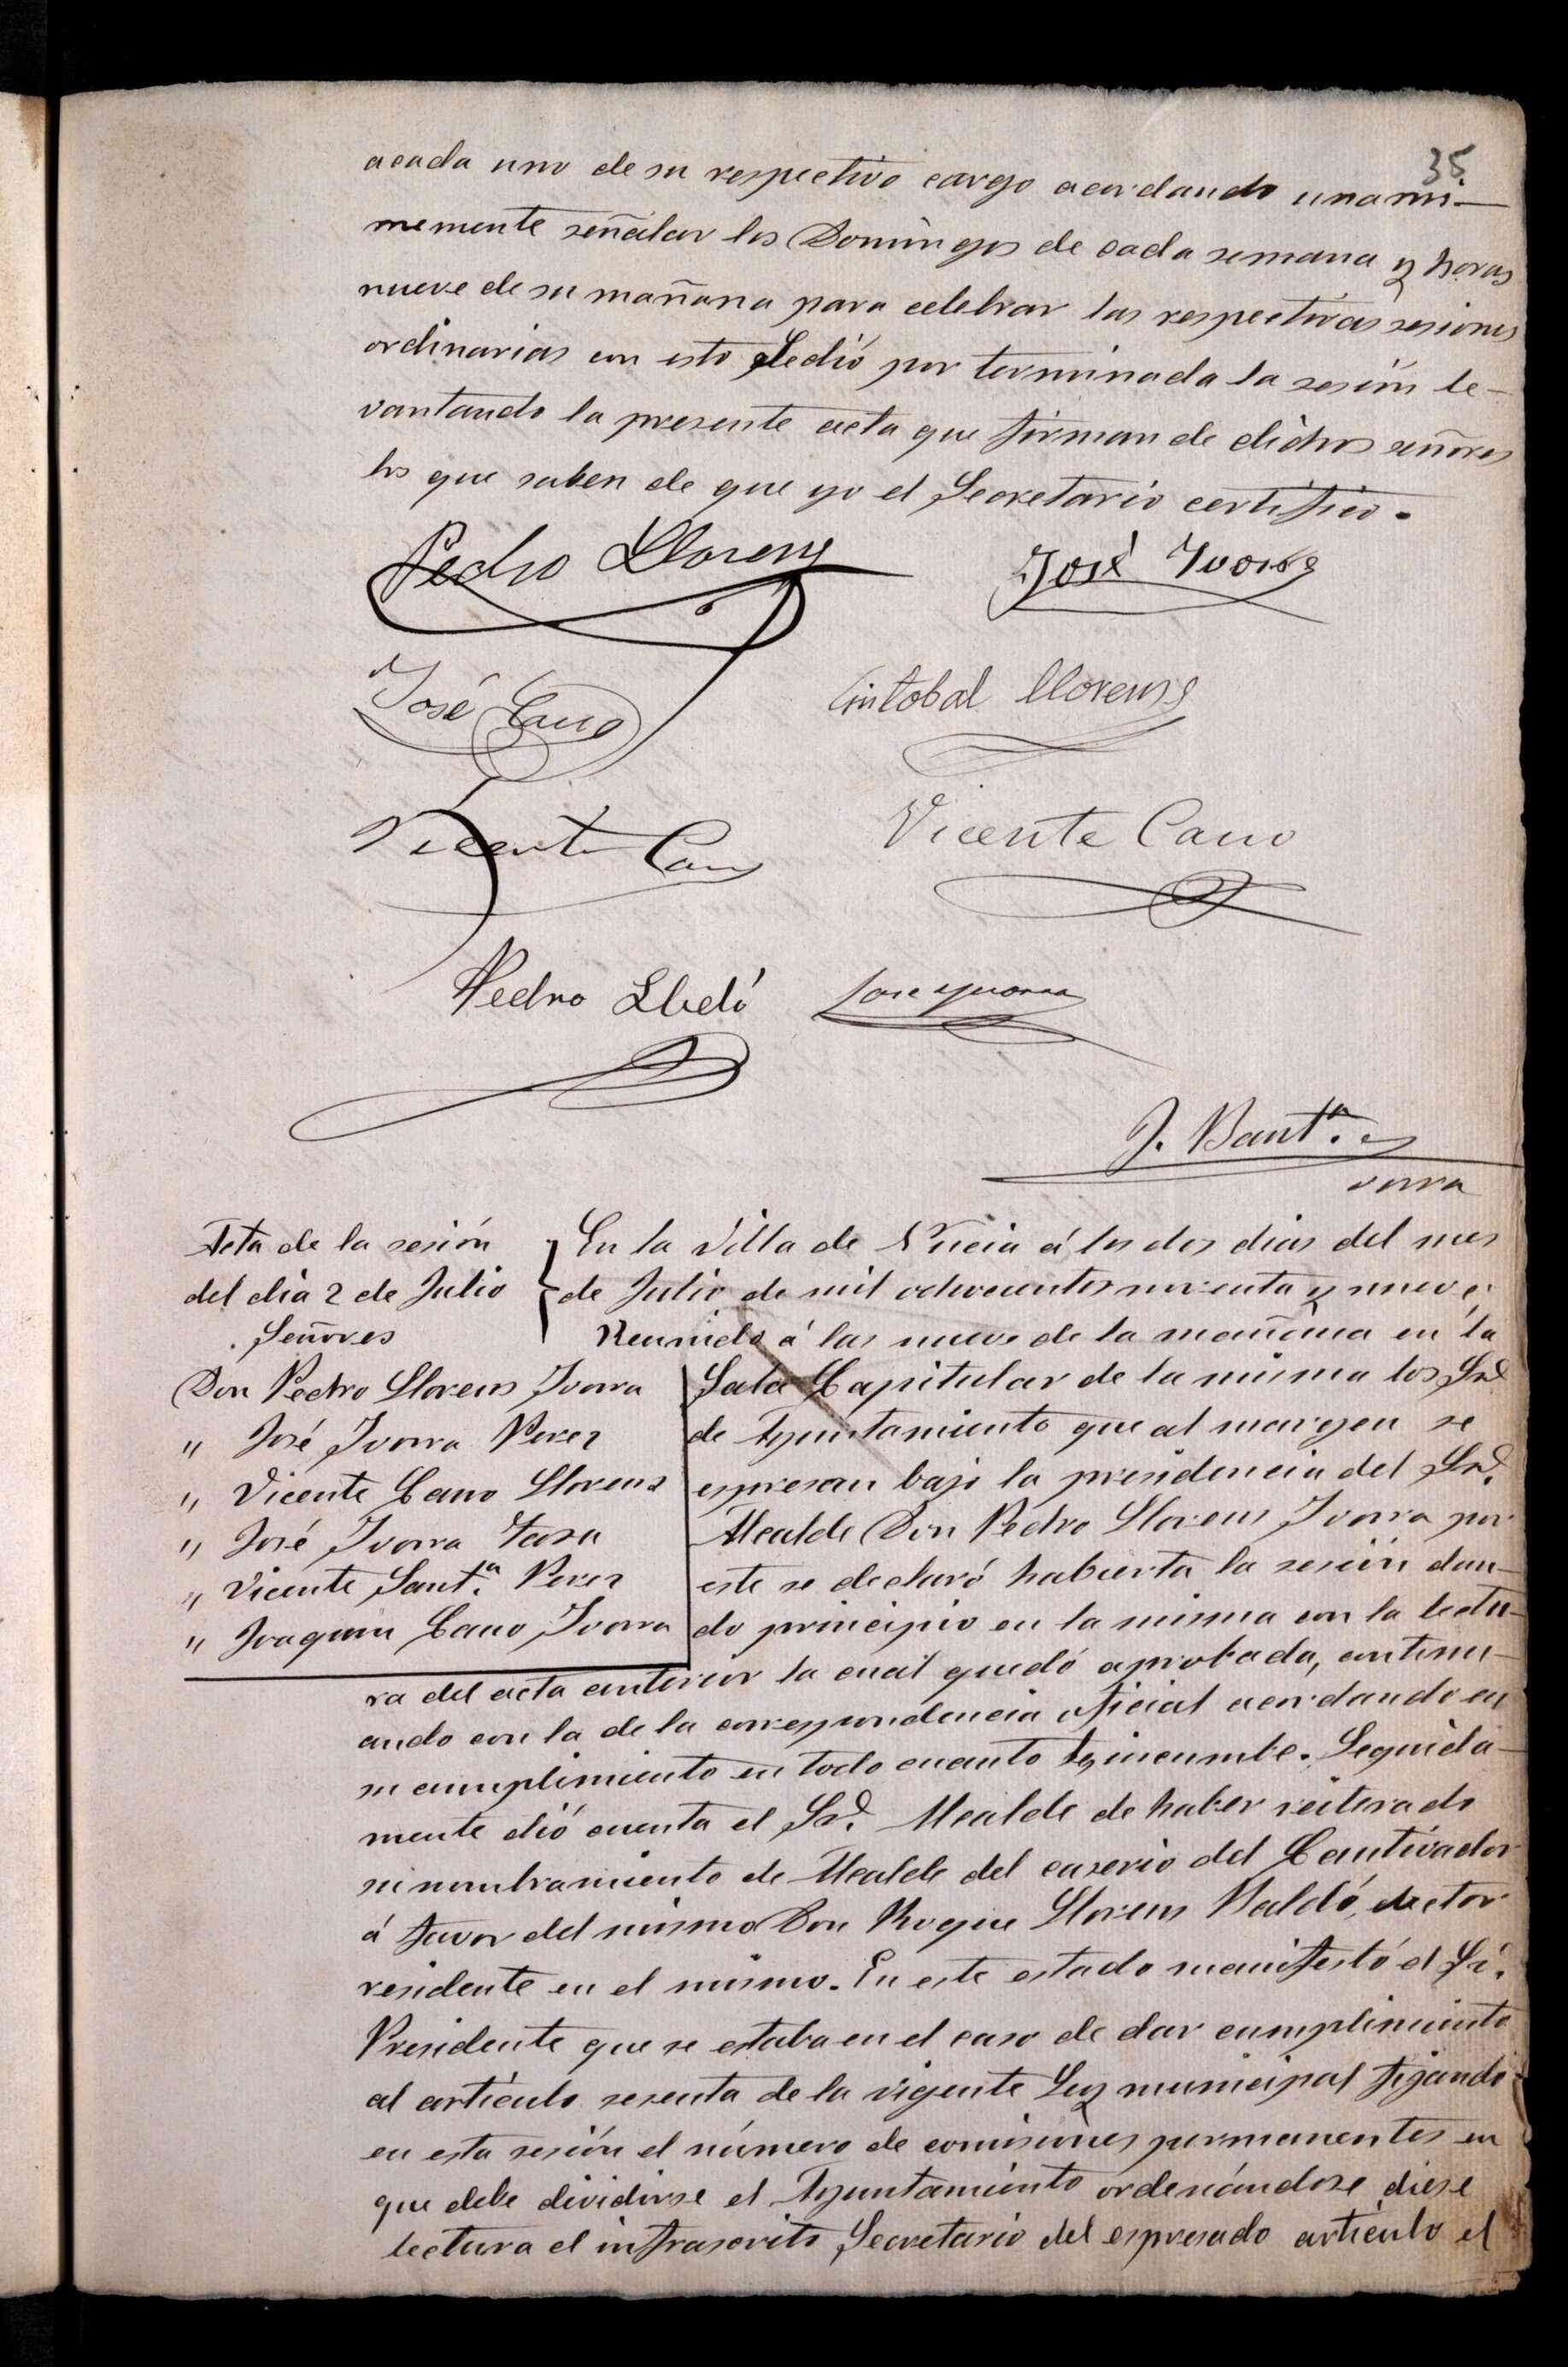 35
acada uno de su respectivo cargo acordando unani-
memente señalar los Domingos de cada semana y horas
nueve de su mañana para celebrar las respectivas sesiones
ordinarias con esto se dió por terminada la sesión le-
vantando la presente acta que firman de dichos señores
los que saben de que yo el Secretario certifico.
Pedro Llorens
José Ivorra
José Cano
Cristobal Llorens
Vicente Cano
Vicente Cano
Pedro Lledó
Jose Yvorra
J. Baut.ta
Ivorra
Acta de la sesión
del dia 2 de Julio
Señores
Don Pedro Llorens Ivorra
" José Ivorra Perez
" Vicente Cano Llorens
" José Ivorra
" Vicente Sant.a Perez
" Joaquin Cano Ivorra
En la Villa de Nucia á los dos dias del mes
de Julio de mil ochocientos noventa y nueve;
Reunido á las nueve de la mañana en la
Sala Capitular de la misma los Sres
de Ayuntamiento que al margen se
espresan bajo la presidencia del Sr.
Alcalde Don Pedro Llorens Ivorra por
este se declaró habierta la sesión dan-
do principio en la misma con la lectu-
ra del acta anterior la cual quedó aprobada, continu-
ando con la de la correspondencia oficial acordando en
su cumplimiento en todo cuanto incumbe. Seguida-
mente dió cuenta el Sr. Alcalde de haber reiterado
su nombramiento de Alcalde del caserio del Cautivador
á favor del mismo Don Roque Llorens Baldó, elector
residente en el mismo. En este estado manifestó el Sr.
Presidente que se estaba en el caso de dar cumplimiento
al artículo sesenta de la vigente Ley municipal fijando
en esta sesión el número de comisiones permanentes en
que debe dividirse el Ayuntamiento ordenándose diese
lectura el infrascrito Secretario del espresado artículo el